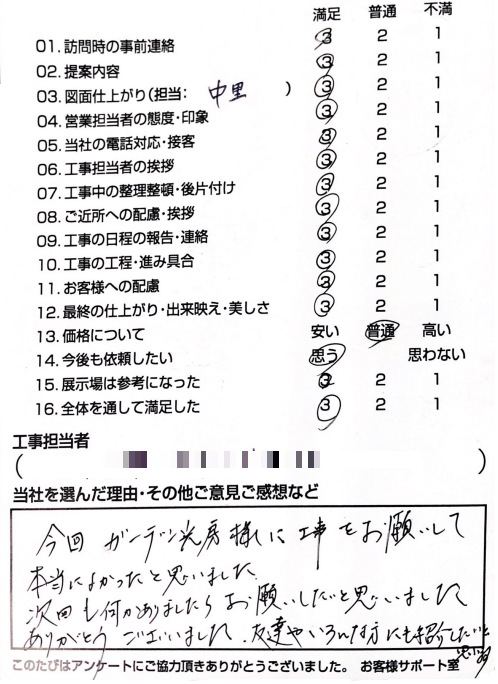 満足 普通 不満
01.訪問時の事前連絡 3 2 1
02.提案内容 3 2 1
03.図面仕上がり(担当: 中里 ) 3 2 1
04.営業担当者の態度・印象 3 2 1
05.当社の電話対応・接客 3 2 1
06.工事担当者の挨拶 3 2 1
07.工事中の整理整頓・後片付け 3 2 1
08.ご近所への配慮・挨拶 3 2 1
09.工事の日程の報告・連絡 3 2 1
10.工事の工程・進み具合 3 2 1
11.お客様への配慮 3 2 1
12.最終の仕上がり・出来映え・美しさ 3 2 1
13.価格について 安い 普通 高い
14.今後も依頼したい 思う 思わない
15.展示場は参考になった 3 2 1
16.全体を通して満足した 3 2 1
工事担当者
( )
当社を選んだ理由・その他ご意見ご感想など
今回 ガーデン光房様に工事をお願いして
本当によかったと思いました
次回も何かありましたらお願いしたいと思いました
ありがとうございました、友達やいろんな方にも紹介したいと
思います
このたびはアンケートにご協力頂きありがとうございました。 お客様サポート室